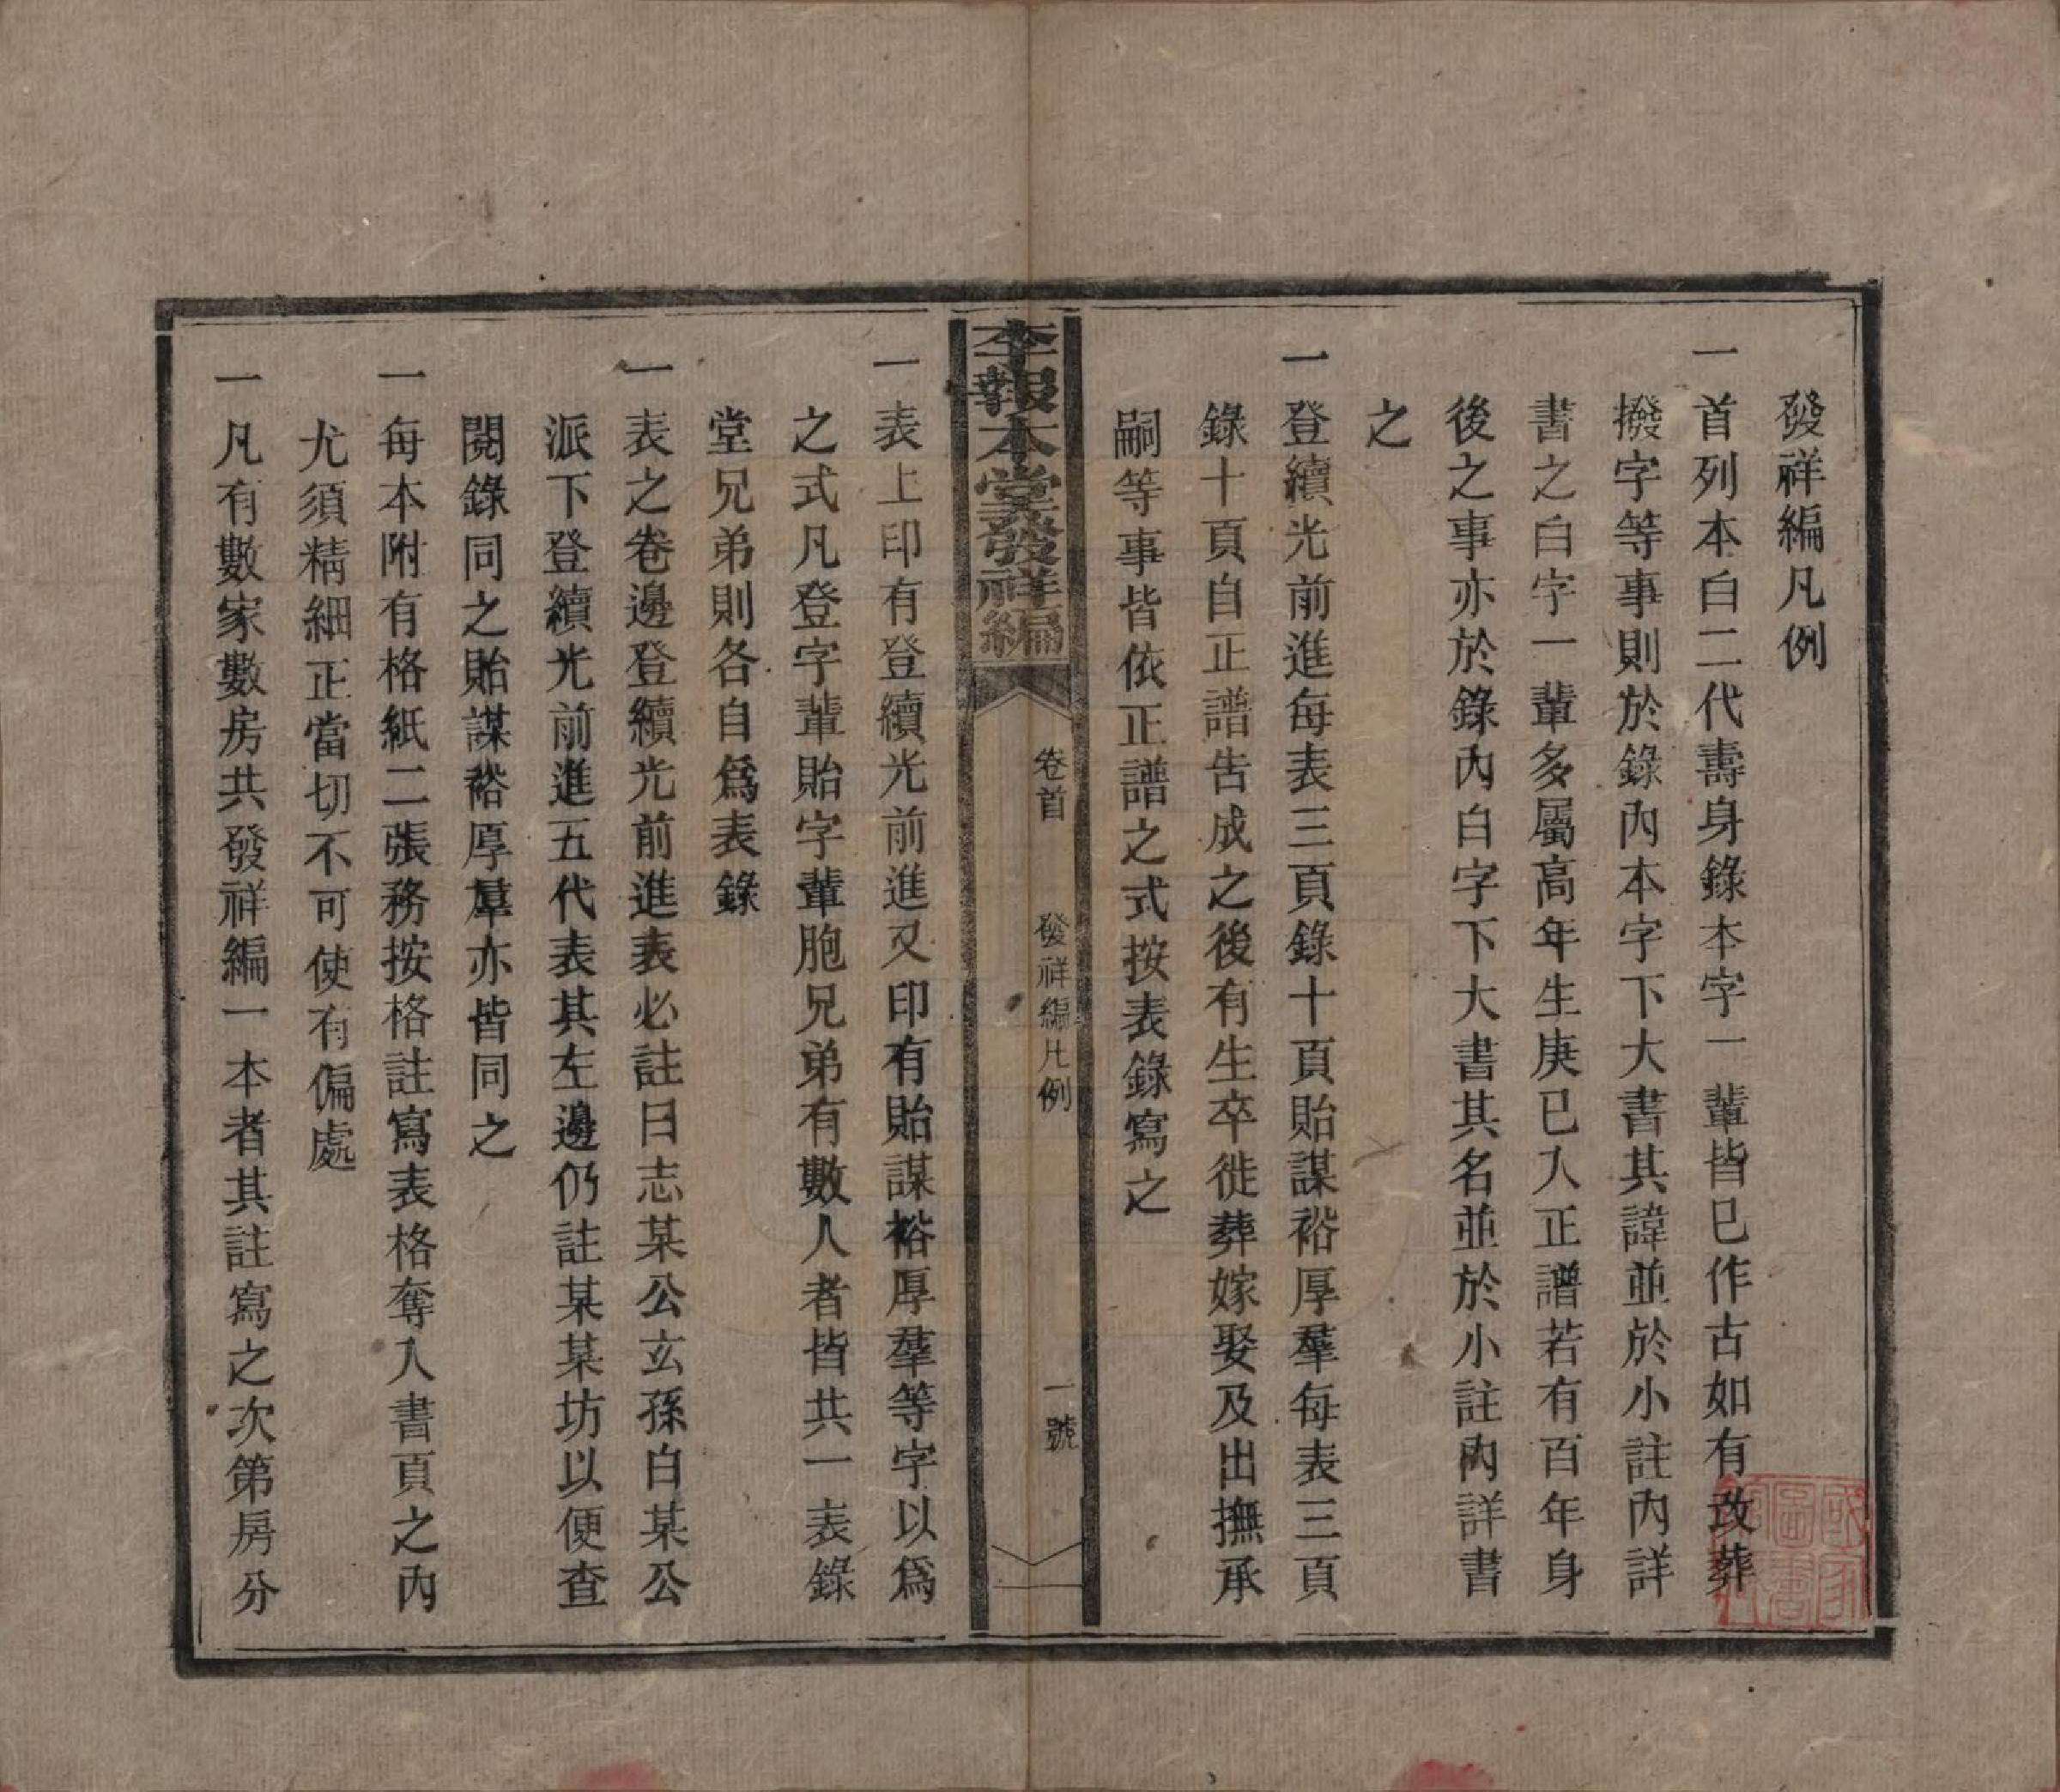 發祥編凡例
一首列本白二代壽身錄本字一輩皆已作古如有改葬
撥字等事則於錄內本字下大書其諱並於小註內詳
書之白字一輩多屬高年生庚已入正譜若有百年身
後之事亦於錄內白字下大書其名並於小註內詳書
之
一登續光前進每表三頁錄十頁貽謀裕厚羣每表三頁
錄十頁自正譜告成之後有生卒徙葬嫁娶及出撫承
嗣等事皆依正譜之式按表錄寫之
李報本堂發祥編
卷首 發祥編凡例 一號
一表上印有登續光前進又印有貽謀裕厚羣等字以爲
之式凡登字輩貽字輩胞兄弟有數人者皆共一表錄
堂兄弟則各自爲表錄
一表之卷邊登續光前進表必註曰志某公玄孫白某公
派下登續光前進五代表其左邊仍註某某坊以便查
閱錄同之貽謀裕厚羣亦皆同之
一每本附有格紙二張務按格註寫表格奪入書頁之內
尤須精細正當切不可使有偏處
一凡有數家數房共發祥編一本者其註寫之次第房分
國家圖書